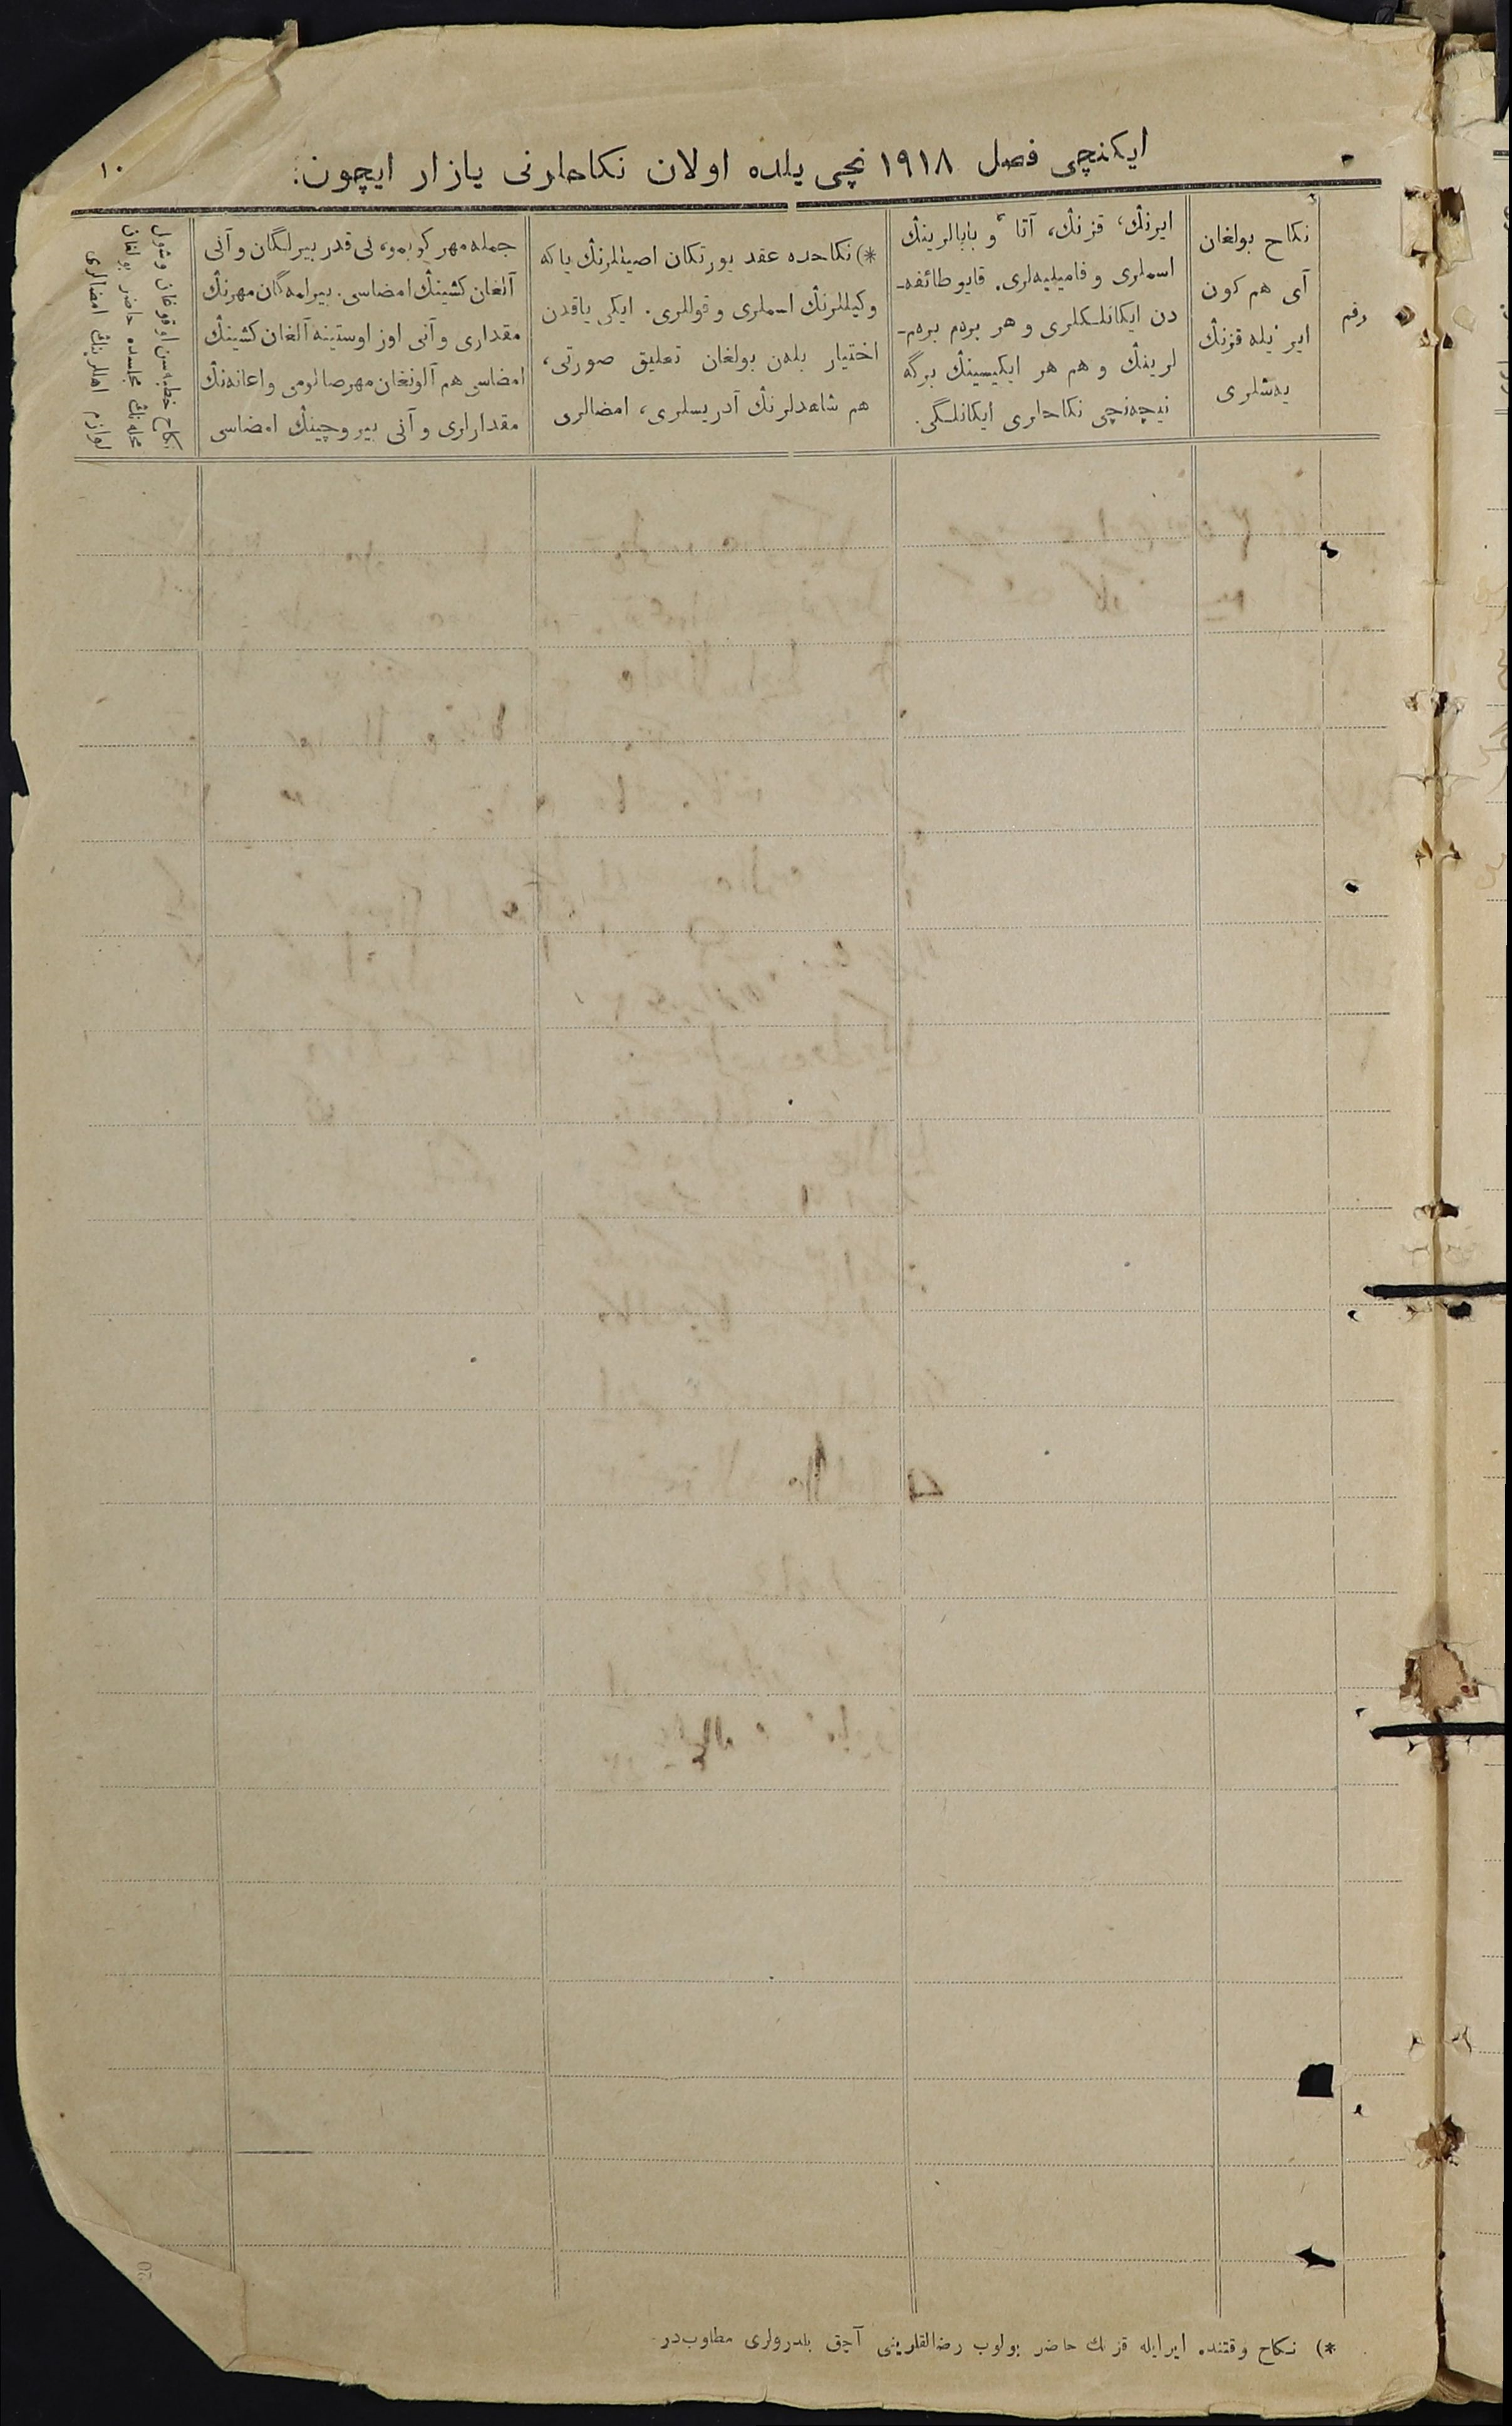 ایکنچی فصل ۱۹۱۸ نچی یلده اولان نکاحلرنی یازار ایچون:
۱۰
رقم
نکاح بولغان
آی هم کون
ایر ئیله قزنڭ
یەشلری
ایرنڭ، قزنڭ، آتا و بابالرینڭ
اسملری و فامیلیەلری. قایو طائفه-
دن ایکانلکلری و هر برم برم-
لرینڭ و هم هر ایکیسینڭ برگه
نیچەنچی نکاحلری ایکانلگی.
*) نکاحده عقد یورتکان اصیللرنڭ یا که
وکیللرنڭ اسملری و قوللری. ایکی یاقدن
اختیار بلەن بولغان تعلیق صورتی،
هم شاهدلرنڭ آدریسلری، امضالری
جمله مهر کوبمو، نی قدر بیرلگان و آنی
آلغان کشینڭ امضاسی. بیرلمەگان مهرنڭ
مقداری و آنی اوز اوستینه آلغان کشینڭ
امضاسی هم آلونغان مهرصالومی و اعانەنڭ
مقدارلری و آنی بیروچینڭ امضاسی
نکاح خطبەسن اوقوغان و شول
محلەنڭ مجلسده حاضر بولغان
لوازم اهللرینڭ امضالری
*) نکاح وقتنده ایرایله قزنڭ حاضر بولوب رضالقلرینی آچق بلدرولری مطلوبدر.